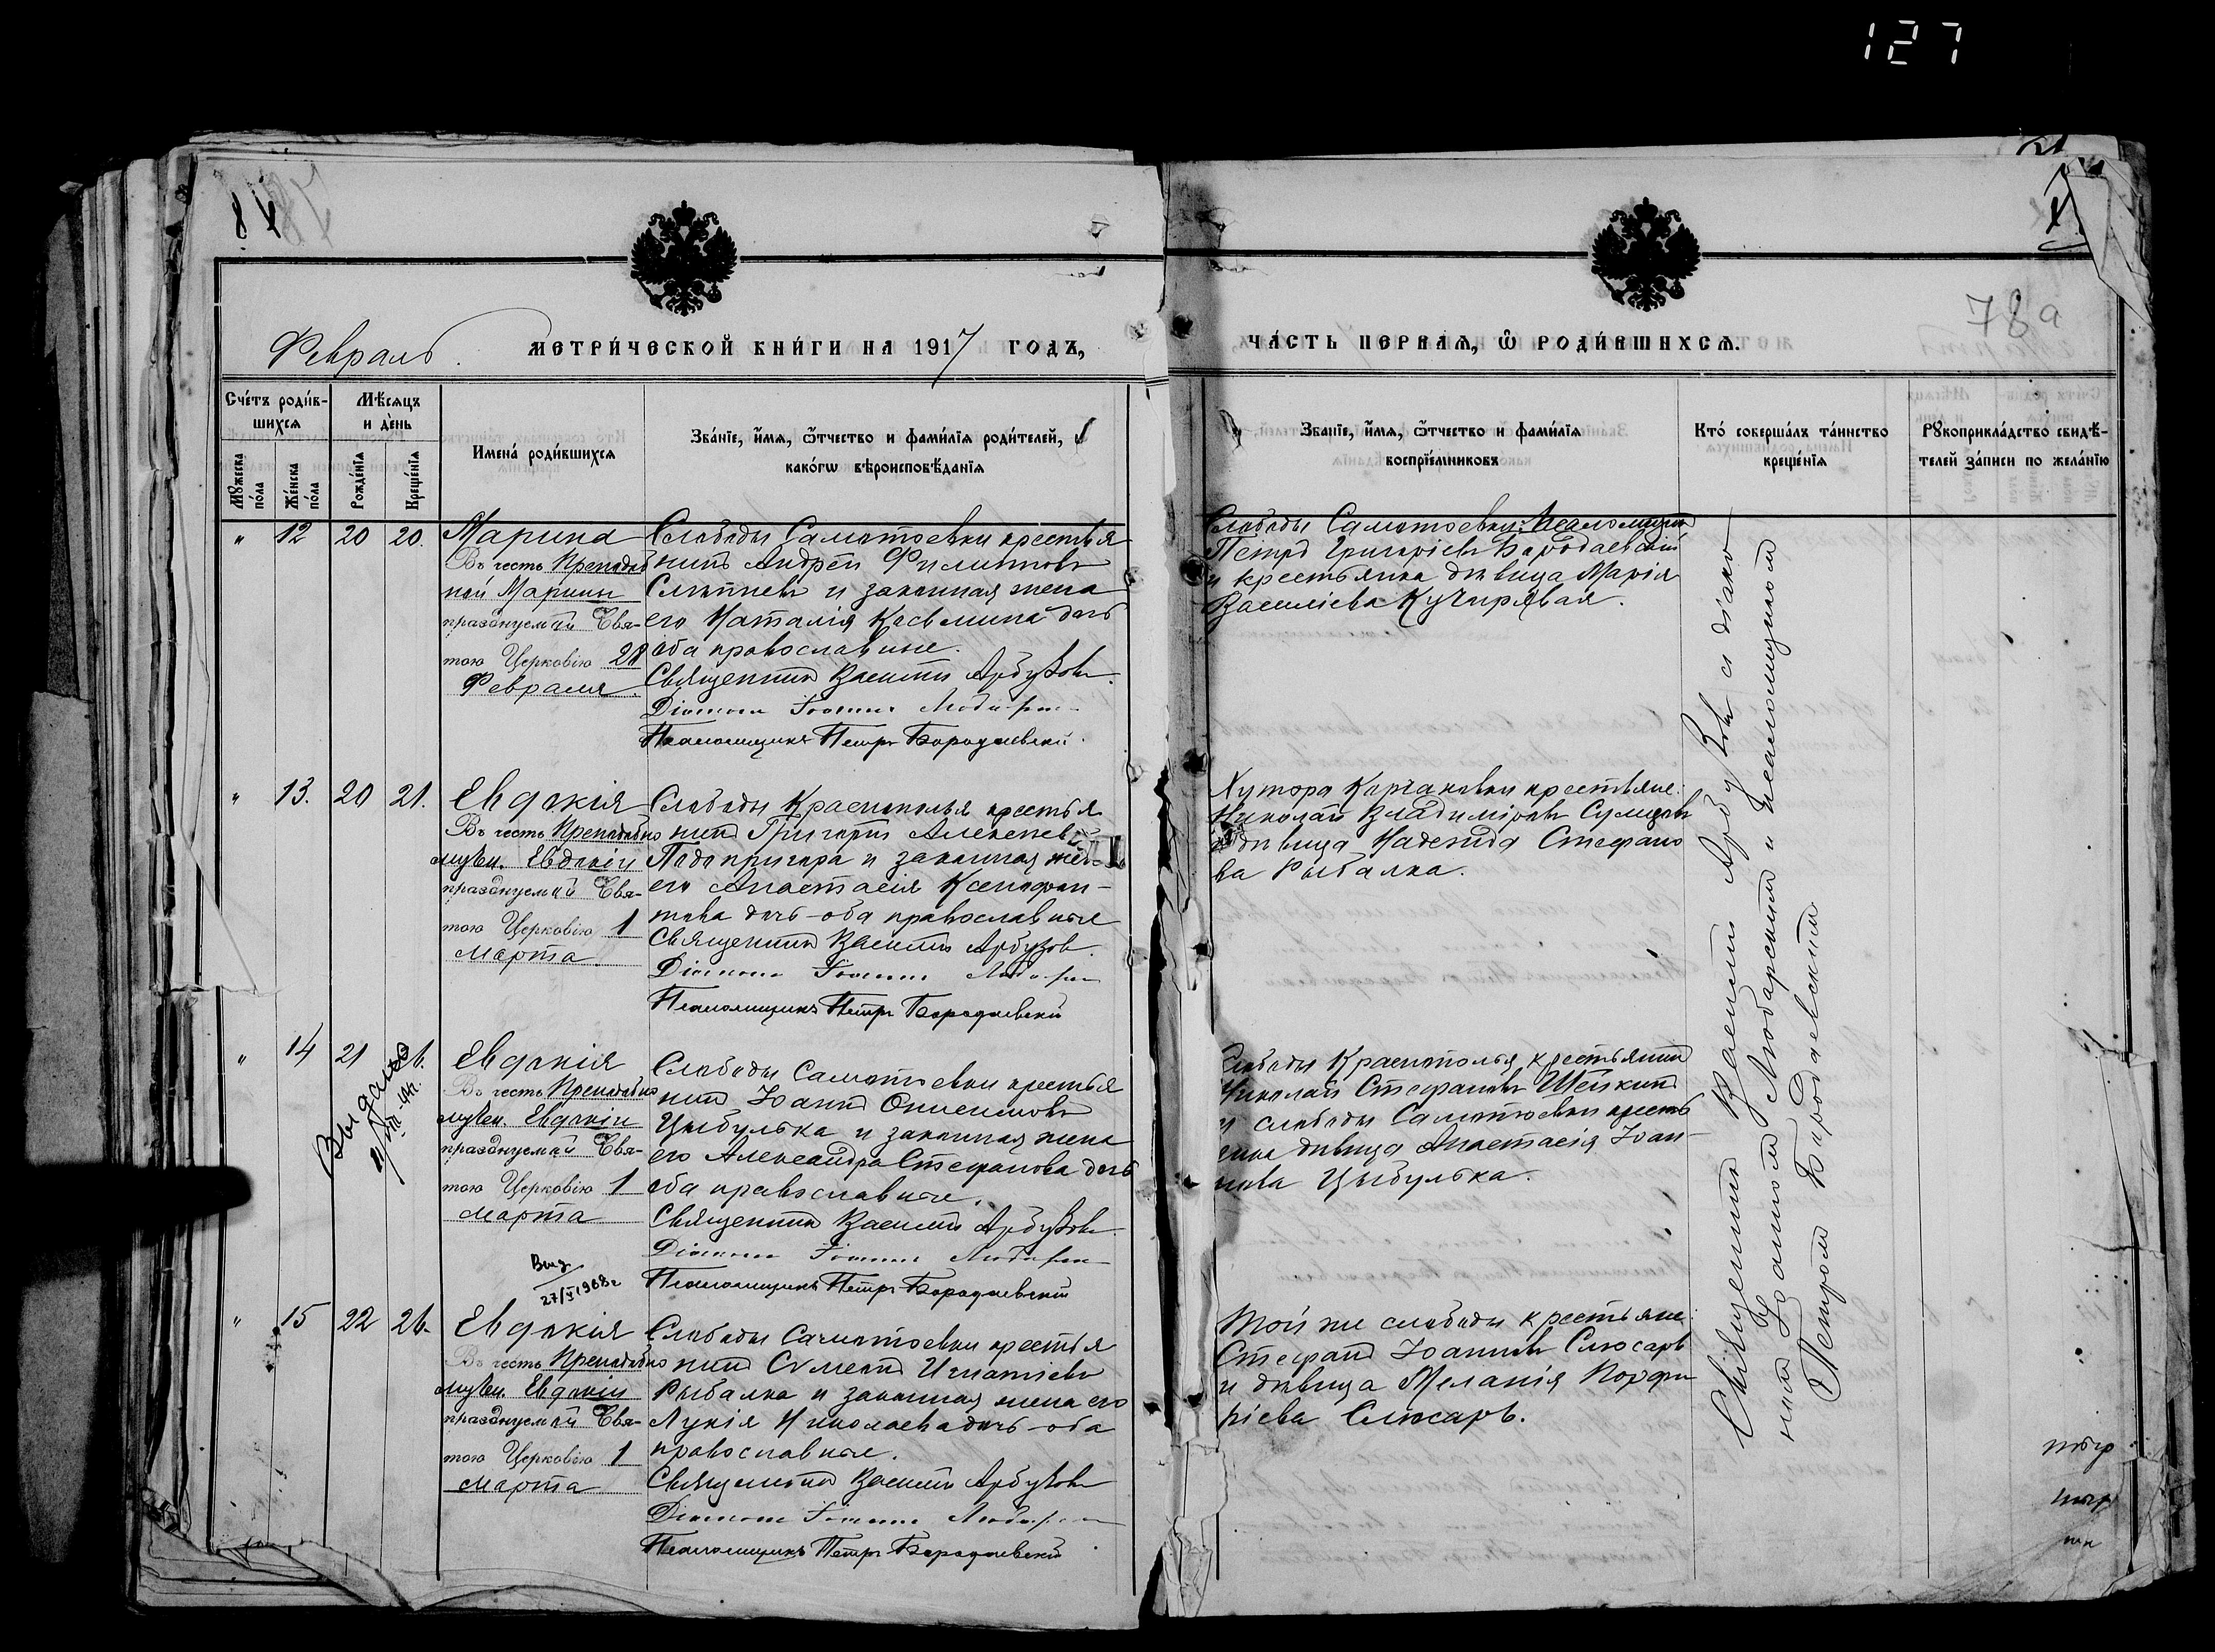 127
84
78а
Февраль
МЕТРИ́ЧЕСКОЙ КНИ́ГИ НА 1917 ГОДЪ,
ЧА́СТЬ ПЕРВАѦ, Ѽ РОДИ́ВШИХСѦ.
Сче́тъ роди́в-
шихсѧ
Мѣ́сѧцъ
и де́нь
Мꙋжеска
по́ла
Же́нска
по́ла
Рожде́нїѧ
Креще́нїѧ
Имена̀ роди́вшихсѧ
Зва́нїе, и҆́мѧ, ѻ҆́тчество и фами́лїѧ роди́телей, и
како́гѡ вѣроисповѣ́данїѧ
Зва́нїе, и҆́мѧ, ѻ҆́тчество и фами́лїѧ
воспрїе́мниковъ
Кто́ соверша́лъ та́инство
креще́нїѧ
Рꙋкоприкла́дство свидѣ́-
телей за́писи по жела́нїю
" 12 20 20.
Марина
Въ честь Преподоб
ной Марины
празднуемой Свя-
тою Церковію 28
Февраля.
Слободы Самотоевки крестья
нинъ Андрей Филиповъ
Слѣпневъ и законная жена
его Наталія Косьмина дочь
оба православные.
Священникъ Василій Арбузовъ.
Діаконъ Іоаннъ
Псаломщикъ Петръ Бородаевскій.
Слободы Самотоевки: Псаломщикъ
Петръ Григоріевъ Бородаевскій
и крестьянка дѣвица Марія
Василіева Кучирявая.
" 13. 20 21.
Евдокія
Въ честь Преподобно
мучен. Евдокіи
празднуемой Свя-
тою Церковію 1
Марта
Слободы Краснополья крестья
нинъ Григорій Алексѣевъ
Подопригора и законная жена
его Анастасія Ксенофон-
това дочь - оба православные
Священникъ Василій Арбузовъ.
Діаконъ Іоаннъ
Псаломщикъ Петръ Бородаевскій
Хутора Корчаковки крестьяне:
Николай Владиміровъ
и дѣвица Надежда Стефано
ва Рыбалка.
" 14 21 26.
Выдано
Евдокія
Въ честь Преподобно
мучен. Евдокіи
празднуемой Свя-
тою Церковію 1
Марта
Слободы Самотоевки крестья
нинъ Іоаннъ Онисимовъ
Цыбулька и законная жена
его Александра Стефанова дочь
оба православные.
Священникъ Василій Арбузовъ.
Діаконъ Іоаннъ
Псаломщикъ Петръ Бородаевскій
Слободы Краснополья крестьянинъ
Николай Стефановъ Шейкинъ
и слободы Самотоевки кресть
янка дѣвица Анастасія Іоан-
нова Цыбулька.
Выд
27/V 1968г
" 15 22 26.
Евдокія
Въ честь Преподобно
мучен. Евдокіи
празднуемой Свя-
тою Церковію 1
Марта
Слободы Самотоевки крестья
нинъ Сѵмеонъ Игнатіевъ
Рыбалка и законная жена его
Лукія Николаева дочь - оба
православные.
Священникъ Василій Арбузовъ
Діаконъ Іоаннъ
Псаломщикъ Петръ Бородаевскій
Той же слободы крестьяне:
Стефанъ Іоанновъ Слюсарь
и дѣвица Меланія Порфи
ріева Слюсарь.
Священникъ Василій Арбузовъ съ діако-
номъ Іоанномъ Любарскимъ и Псаломщикомъ
Петромъ Бородаевскимъ